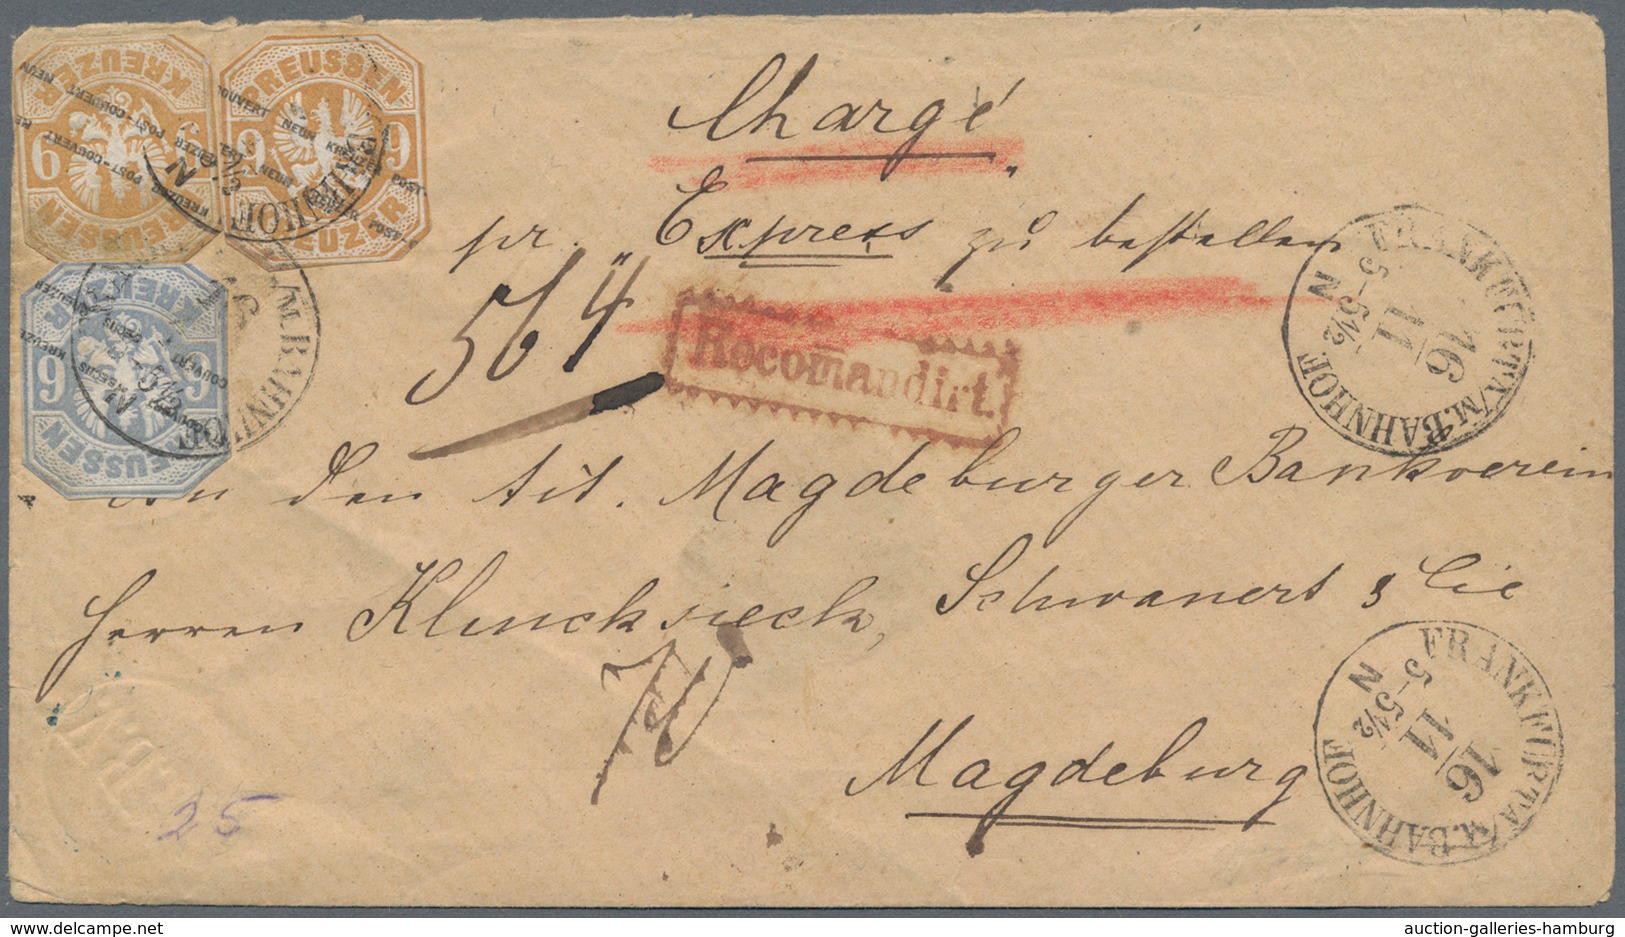 Chargé
pr. „Express“ zu bestellen
564
Recomandirt.
An den tit. Magdeburger Bankverein
Herren Klincksieck, Schwanert & Cie
Magdeburg
25
PREUSSEN
9 9
KREUZER
KREUZER
9 9
PREUSSEN
KREUZER
9 9
PREUSSEN
FRANKFURT A/M. BAHNHOF.
16
11
5-5½
N
FRANKFURT A/M. BAHNHOF.
16
11
5-5½
N
auction-galleries-hamburg